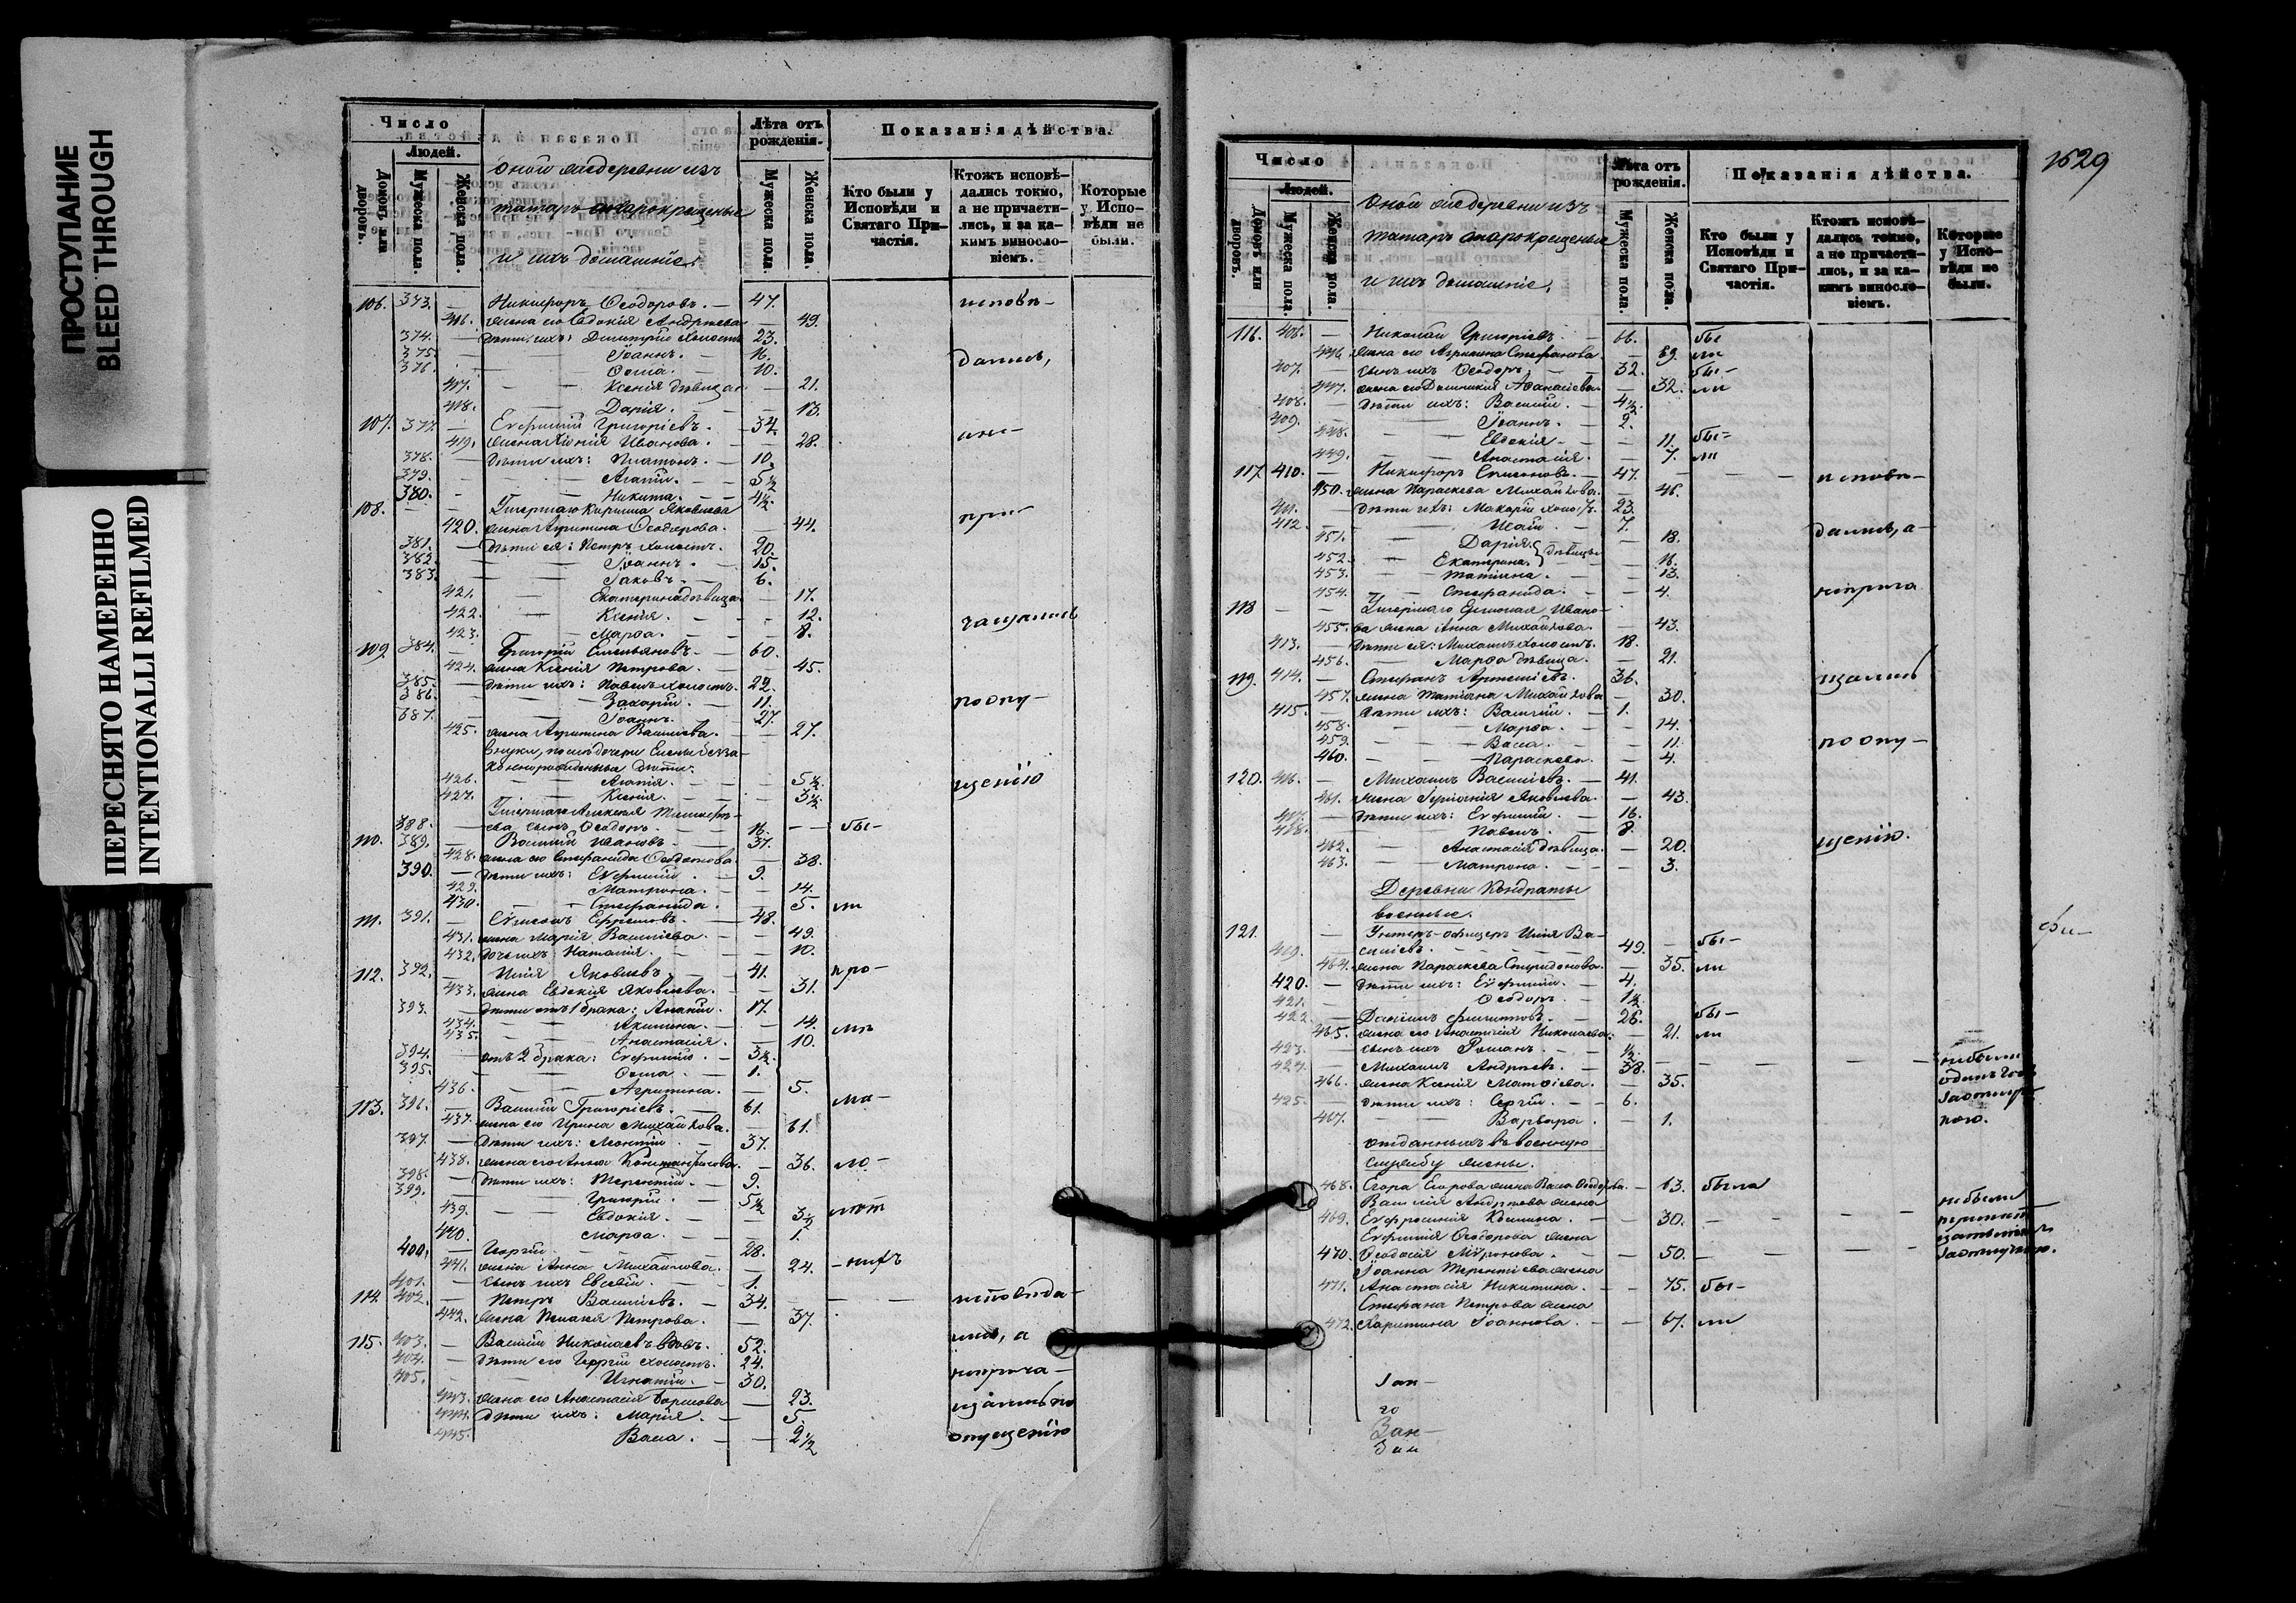 ПРОСТУПАНИЕ
BLEED THROUGH
ПЕРЕСНЯТО НАМЕРЕННО
INTENTIONALLI REFILMED
Число
Людей.
Домовъ или дворовъ.
Мужеска пола.
Женска пола.
Оной же деревни изъ
татаръ старокрещеные
и ихъ домашніе.
Лѣта отъ рожденія.
Мужеска пола.
Женска пола.
Показанія дѣйства.
Кто были у Исповѣди и Святаго При-частія.
Ктожъ исповѣ-дались токмо, а не причасти-лись, и за ка-кимъ винословіемъ.
Которые у Испо-вѣди не были.
106. 373. — Никифоръ Ѳеодоровъ. — 47. исповѣ-
416. жена его Евдокія Андреева — 49.
374. — дѣти ихъ: Димитрій холостъ 23.
375. — Іоаннъ. — 16. дались,
376. — Ѳома. — 10.
417. — Ксенія дѣвица — 21.
418. — Дарія. — 13.
107. 377. — Евфимій Григоріевъ. — 34. а не-
419. жена Ксенія Иванова. — 28.
378. — дѣти ихъ: Платонъ. — 10.
379. — Агапій. — 5½
380. — Никита. — 4½.
108. — Умершаго Кирилла Яковлева при-
420. жена Акилина Ѳеодорова. — 44.
381. — дѣти ея: Петръ холостъ. 20.
382. — Іоаннъ. — 15.
383. — Іаковъ. — 6.
421. — Екатерина дѣвица — 17.
422. — Ксенія. — 12. чащались
423. — Марѳа. — 8.
109. 384. — Григорій Емельяновъ. — 60.
424. жена Ксенія Петрова. — 45.
385. — дѣти ихъ: Павелъ холостъ. 22.
386. — Захарій. — 11. по опу-
387. — Іоаннъ. — 27.
425. жена Акилина Васильева. — 27.
внуки, по ихъ дочери Елены безза-
коннорожденные дѣти:
426. — Агапія. — 5½ щенію
427. — Ксенія. — 3½
Умершаго Алексея Тимофѣ-
388. — ева сынъ Ѳеодоръ. — 16. — бы-
110. 389. — Василій Ивановъ. — 37.
428. жена его Стефанида Ѳеодотова — 38.
390. — дѣти ихъ: Евфимій. — 9.
429. — Матрона. — 14.
430. — Стефанида. — 5. ли
111. 391. — Ефремовъ. — 48.
431. жена Марія Васильева. — 49.
432. дочь ихъ Наталія. — 10.
112. 392. — Илія Яковлевъ. — 41. кро-
433. жена Евдокія Яковлева. — 31.
393. — дѣти отъ 1 брака: Ананій. 17.
434. — Акилина. — 14. мѣ
435. — Анастасія. — 10.
394. — отъ 2 брака: Евфимій. — 3½.
395. — Ѳома. — 1.
436. — Агрипина. — 5.
113. 396. — Василій Григоріевъ. — 61. ма-
437. жена его Ирина Михайлова. — 61.
397. — дѣти ихъ: Леонтій. — 37.
438. жена его Анна Константинова. — 36. ло-
398. — дѣти ихъ: Терентій. — 9.
399. — Григорій. — 5½ лѣт
439. — Евдокія. — 3½
440. — Марѳа. — 1.
400. — Георгій. — 28.
441. жена Анна Михайлова. — 24. — нихъ
401. — сынъ ихъ Евсевій. — 1.
114. 402. — Петръ Васильевъ. — 34. — исповѣда-
442. жена Пелагія Петрова. — 37.
115. 403. — Василій Николаевъ вдовъ. 52. лись, а
404. — дѣти его Георгій холостъ. 24.
405. — Игнатій. — 30. не прича-
443. жена его Анастасія Борисова — 23. щались по
444. дѣти ихъ: Марія. — 5.
445. Васса. — 2½ опущенію
1629
Число
Людей.
Домовъ или дворовъ.
Мужеска пола.
Женска пола.
Оной же деревни изъ
татаръ старокрещеные
и ихъ домашніе.
Лѣта отъ рожденія.
Мужеска пола.
Женска пола.
Показанія дѣйства.
Кто были у Исповѣди и Святаго При-частія.
Ктожъ исповѣ-дались токмо, а не причасти-лись, и за ка-кимъ винословіемъ.
Которые у Испо-вѣди не были.
116. 406. — Николай Григоріевъ. — 66. бы
446. жена его Агрипина Стефанова — 69. ли
407. — сынъ ихъ Ѳеодоръ. — 32. бы-
447. жена его Домникія Аѳанасіева. — 32. ли
408. дѣти ихъ: Василій. — 4½.
409. — Іоаннъ. — 2.
448. — Евдокія. — 11. бы-
449. — Анастасія. — 7. ли
117. 410. — Никифоръ Симоновъ. — 47. — исповѣ-
450. жена Параскева Михайлова. — 46.
411. — дѣти ихъ: Макарій холос. 23.
412. — Исаій. — 7. дались, а-
451. — Дарія. } — 18.
452. — Екатерина. } дѣвицы — 16.
453. — Татіана. — 13.
454. — Стефанида. — 4. не прича
118. — Умершаго Ермолая Ивано-
455. ва жена Анна Михайлова. — 43.
413. — дѣти ея: Михаилъ холостъ. 18.
456. — Марѳа дѣвица. — 21.
119. 414. — Стефанъ Артеміевъ. 36. щались
457. жена Татіана Михайлова — 30.
415. — дѣти ихъ: Василій. — 1.
458. — Марѳа. — 14.
459. — Васса. — 11. по опу-
460. — Параскева. — 4.
120. 416. — Михаилъ Васильевъ. — 41.
461. жена Яковлева. — 43.
417. — дѣти ихъ: Евфимій. — 16.
418. — Павелъ. — 8.
462. — Анастасія дѣвица. — 20. щенію.
463. — Матрона. — 3.
Деревни Кондраты
военные.
121. — Унтеръ-офицеръ Илія Ва-
419. сильевъ. — 49. — бы-
464. жена Параскева Спиридонова. — 35. ли
420. — дѣти ихъ: Евфимій. — 4.
421. Ѳеодоръ. — 1½.
422. — Даніилъ Филипповъ. — 26. бы-
465. жена его Анастасія Николаева. — 21. ли
423. — сынъ ихъ Романъ. — ½.
424. — Михаилъ Андреевъ. — 38. — не были
466. жена Ксенія Матѳіева. — 35. одинъ годъ
425. — дѣти ихъ: Сергій. — 6. за отлуч
467. — Варвара. — 1. кою.
отданныхъ въ военную
службу жены.
468. Егора Егорова жена Васса Ѳеодорова. — 63. была
Василія Андреева жена не были
469. Евфросинія Космина. — 30. —
Евфимія Ѳеодорова жена
470. Ѳеодосія Міронова. — 50. — за отлучкою.
Іоанна Терентіева жена
471. Анастасія Никитина. — 75. бы-
Стефана Петрова жена
472. Харитина Іоаннова. — 67. ли